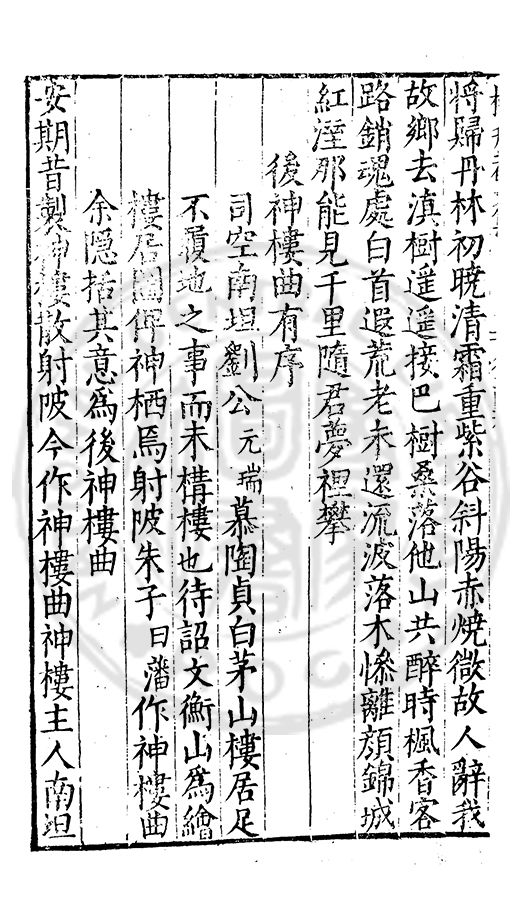 將歸丹林初曉清霜重紫谷斜陽赤燒微故人辭我
故鄉去滇樹遥遥接巴樹桑落他山共醉時楓香客
路銷魂處白首遐荒老未還流波落木慘離顔錦城
紅溼那能見千里隨君夢裡攀
後神樓曲有序
司空南坦劉公元瑞慕陶貞白茅山樓居足
不履地之事而未構樓也待詔文衡山爲繪
樓居圖俾神栖焉射陂朱子曰藩作神樓曲
余隱括其意爲後神樓曲
安期昔製神樓散射陂今作神樓曲神樓主人南坦